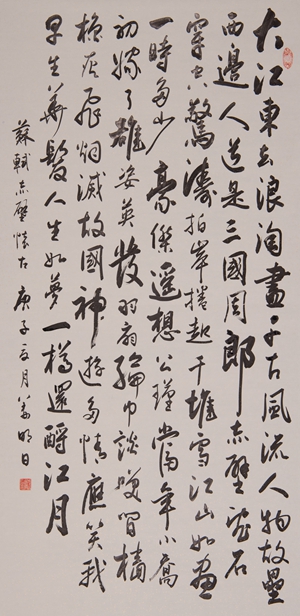 大江東去浪淘盡千古風流人物故壘
西邊人道是三國周郎赤壁亂石
穿空驚濤拍岸捲起千堆雪江山如畫
一時多少豪傑遥想公瑾當年小喬
初嫁了雄姿英發羽扇綸巾談咲間檣
櫓灰飛烟滅故國神遊多情應笑我
早生華髮人生如夢一樽還酹江月
蘇軾赤壁懷古 庚子 月 明日